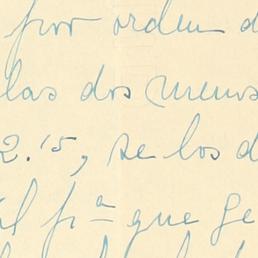 por orden d
las dos menos
2.15, se los d
al pª que ge